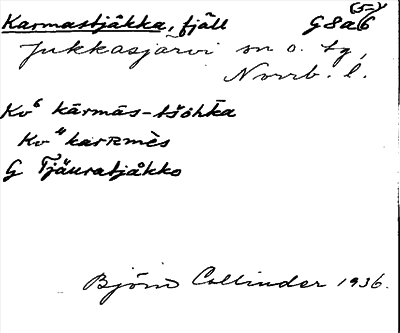 Karmastjåkka, fjäll G 8a6 (5-)
Jukkasjärvi sn o. tg,
Norrb. l.
Kv⁶ kārmās-tšohka
Kv⁴ karʀmès
G Tjäuratjåkko
Björn Collinder 1936.